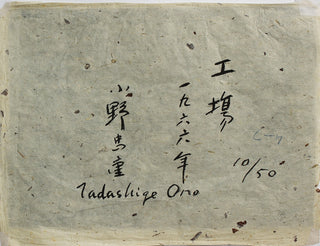 工場
一九六六年
小野忠重
10/50
Tadashige Ono